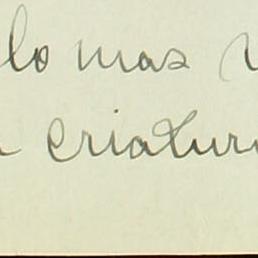 lo mas
criatur